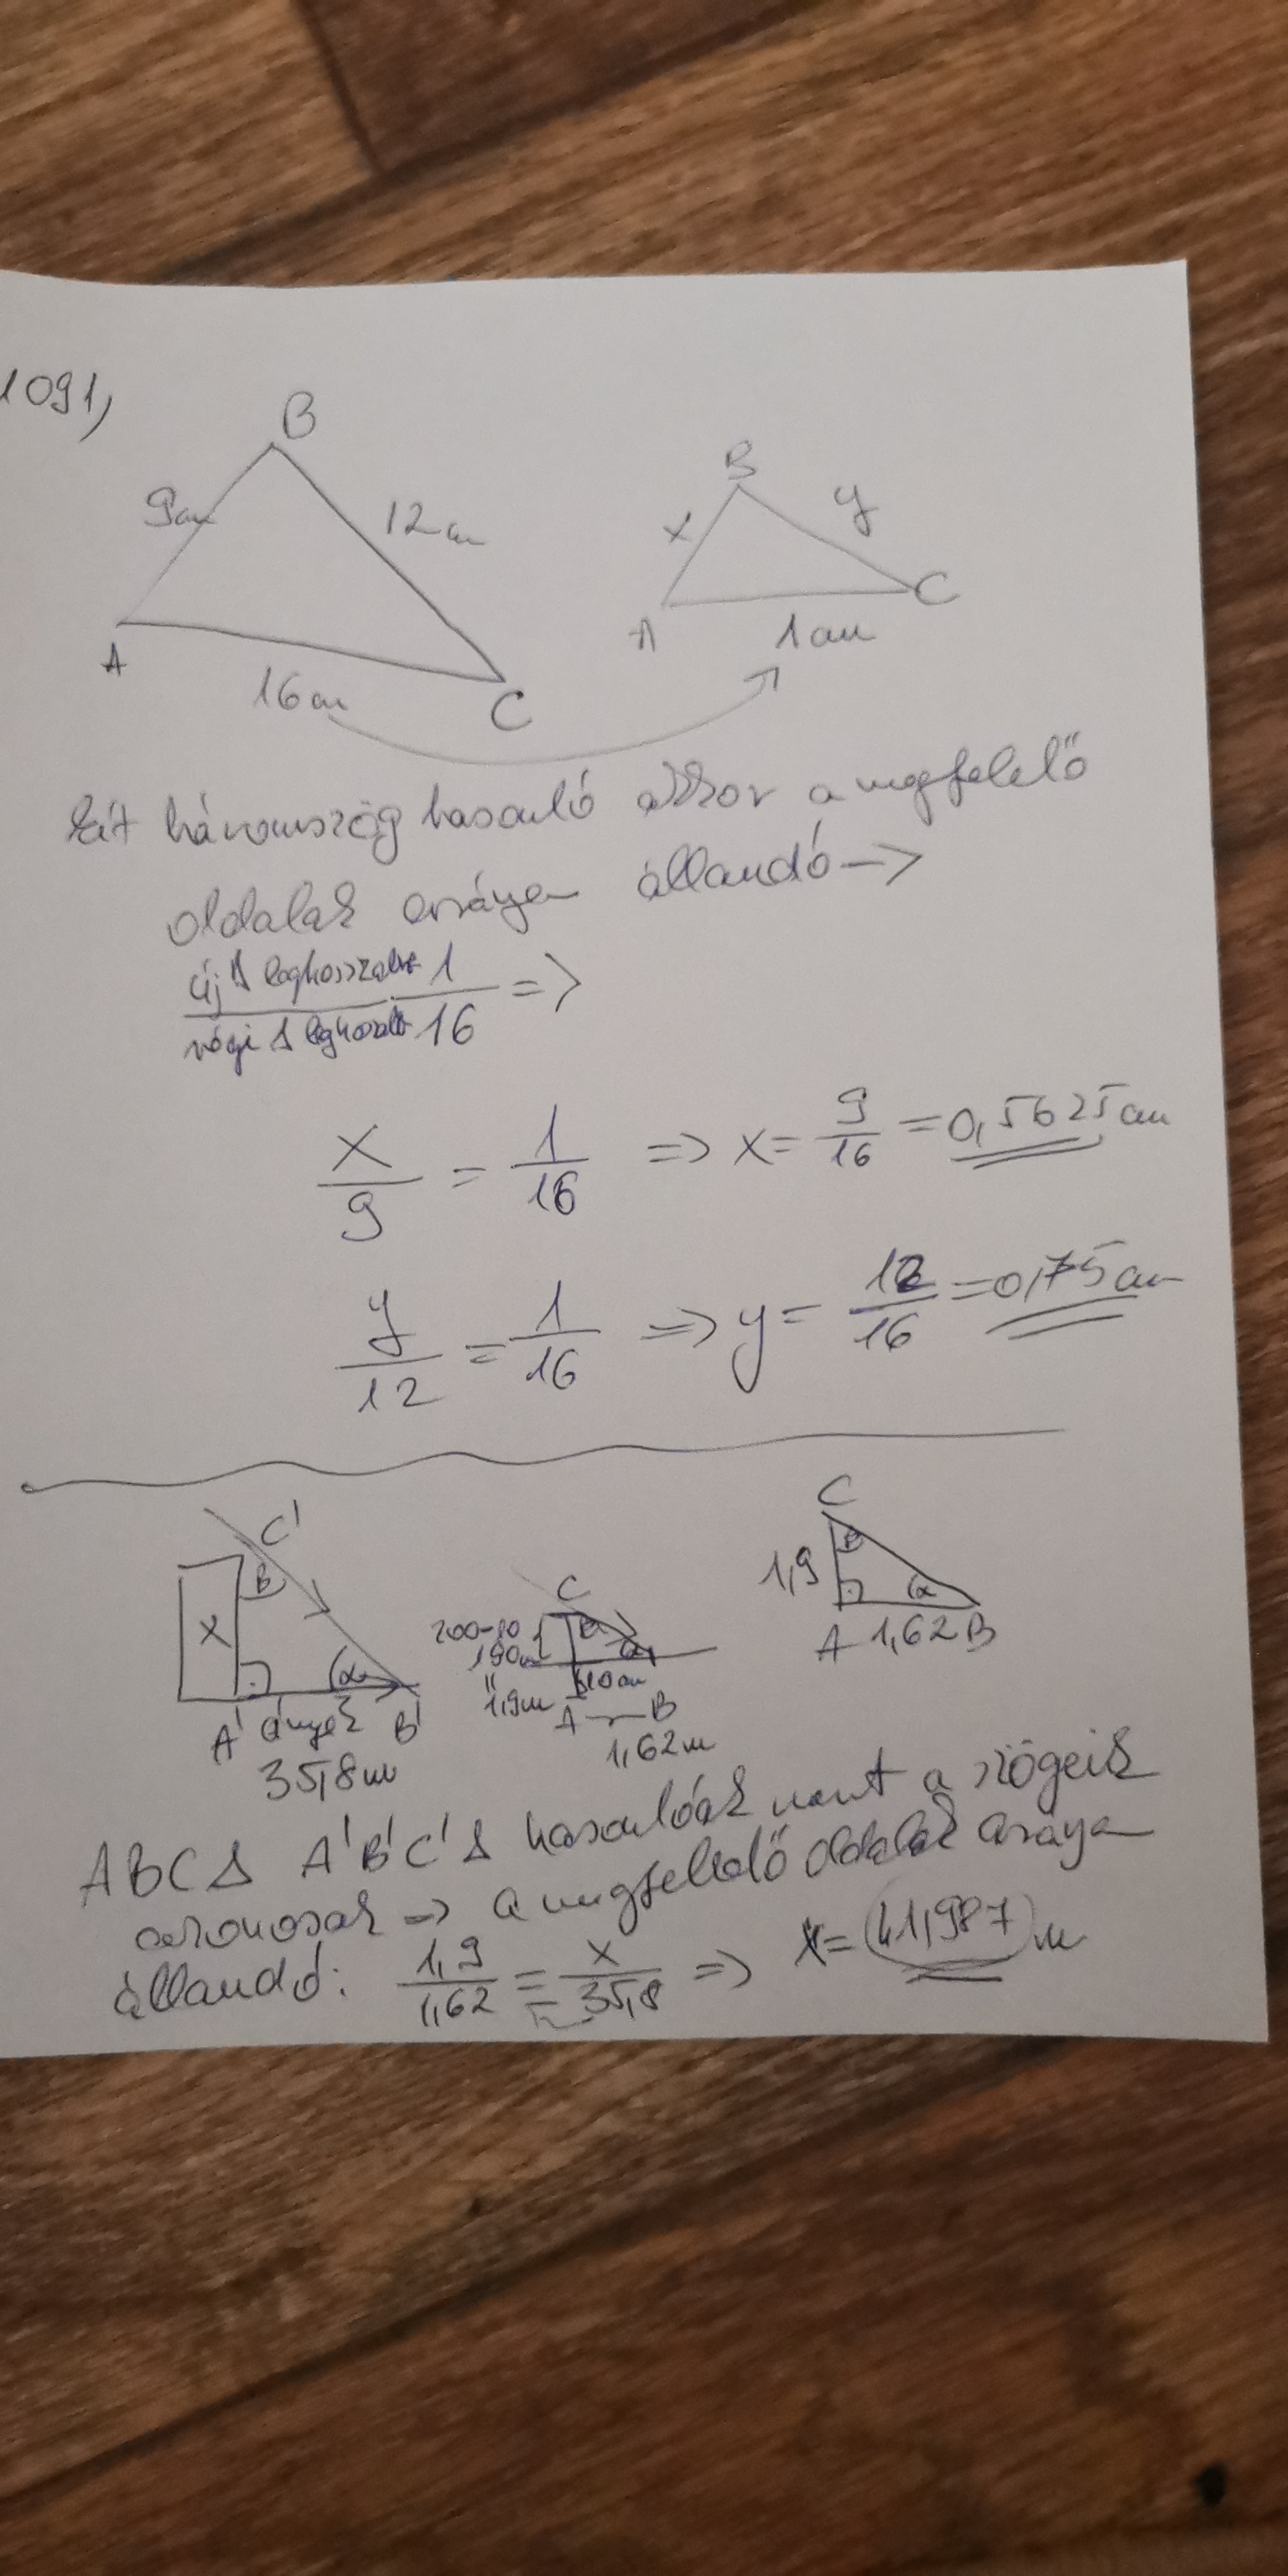 1091,
B
9cm
12cm
A
16cm
C
B
x
y
A
1cm
C
Két háromszög hasonló akkor a megfelelő
oldalak aránya állandó →
új Δ leghosszabb 1 =>
régi Δ leghosszabb 16
x/9 = 1/16 => x = 9/16 = 0,5625 cm
y/12 = 1/16 => y = 12/16 = 0,75 cm
C'
B
x
α
A' árnyék B'
35,8m
C
200-10
190cm
"
1,9m
10cm
α
A B
1,62m
C
1,9
α
A 1,62 B
ABCΔ A'B'C'Δ hasonlóak mert a szögeik
azonosak => a megfelelő oldalak aránya
állandó: 1,9/1,62 = x/35,8 => x = 41,987 m